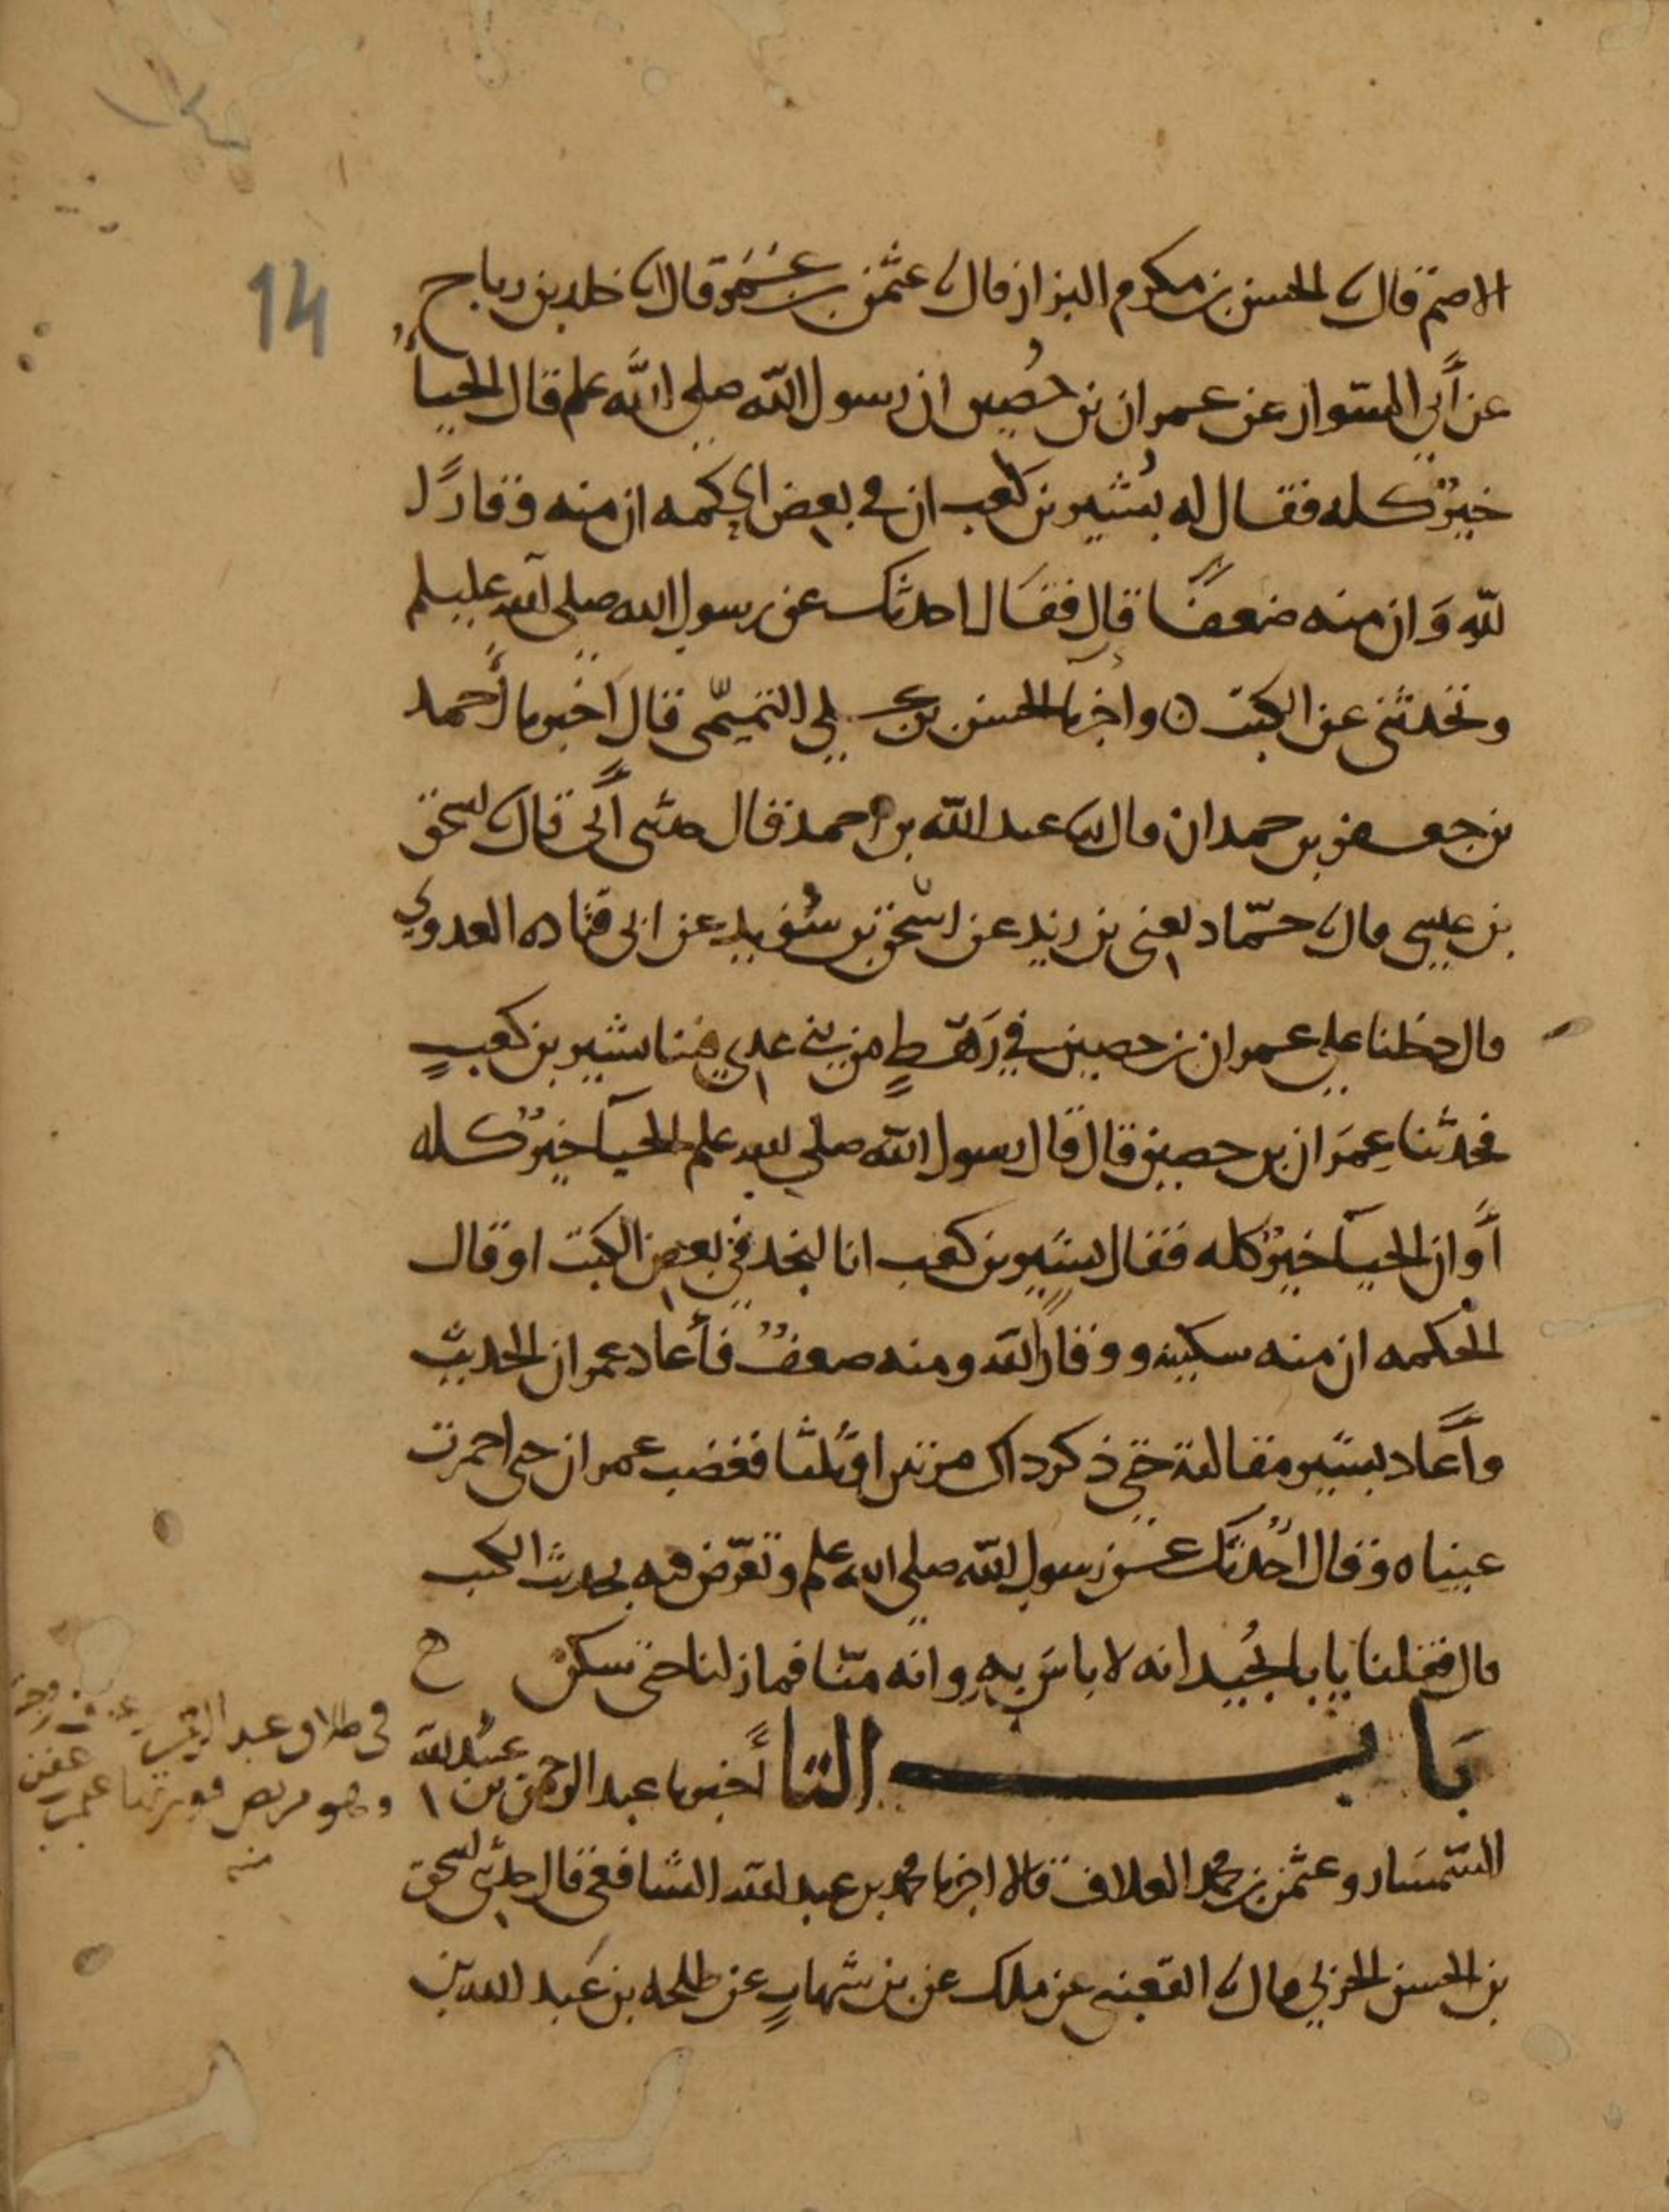 14
الاصم قال ثنا الحسن بن مكرم البزاز قال ثنا عثمن بن عمر قال انا خلد بن رباح
عن أبي السوار عن عمران بن حُصين ان رسول الله صلى الله علم قال الحياءُ
خيرٌ كله فقال له بُشير بن كعب ان في بعض الحكمه ان منه وقارًا
لله وَان منه ضعفًا قال فقال احدثك عن رسول الله صلى الله عليلم
وتحدثني عن الكتب ه وأخبرنا الحسن بن علي التميمي قال اخبرنا أحمد
بن جعفر بن حمدان قال ثنا عبد الله بن احمد قال حدثني أبي قال ثنا اسحق
بن عيسى قال ثنا حمّاد يعني بن زيد عن اسحق بن سُويد عن ابي قتاده العدوي
قال دخلنا على عمران بن حصين في رَهطٍ من بني عدي فينا بشير بن كعبٍ
فحدثنا عِمرَان بن حصين قال قال رسول الله صلى الله علم الحيآ خيرٌ كله
أَو ان الحيآ خيرٌ كله فقال بشير بن كعب انا لنجد في بعض الكتب او قال
الحكمه ان منه سكينه ووقارًا لله ومنه ضعفٌ فأعاد عمران الحديث
وأَعاد بشير مقالته حتى ذكر ذاك مرتين او ثلثا فغضب عمران حتى احمرت
عيناه وقال اُحدثك عن رسول الله صلى الله علم وتعرّض فيه بحديث الكتب
قال فقلنا يابا نُجيد انه لا باسَ بهِ وانه منّا فما زلنا حتى سكن ح
بَاب التا أخبرنا عبد الرحمن بن عبيد الله
السمسار وعثمن بن محمد العلاف قالا اخبرنا محمد بن عبد الله الشافعي قال حدثني اسحق
بن الحسن الحربي قال ثنا القعنبي عن ملك عن بن شهابٍ عن طلحه بن عَبد الله بن
في طلاق عبد الرحمن بن عوف زوجته
وهو مريض فورثها عثمن
منه